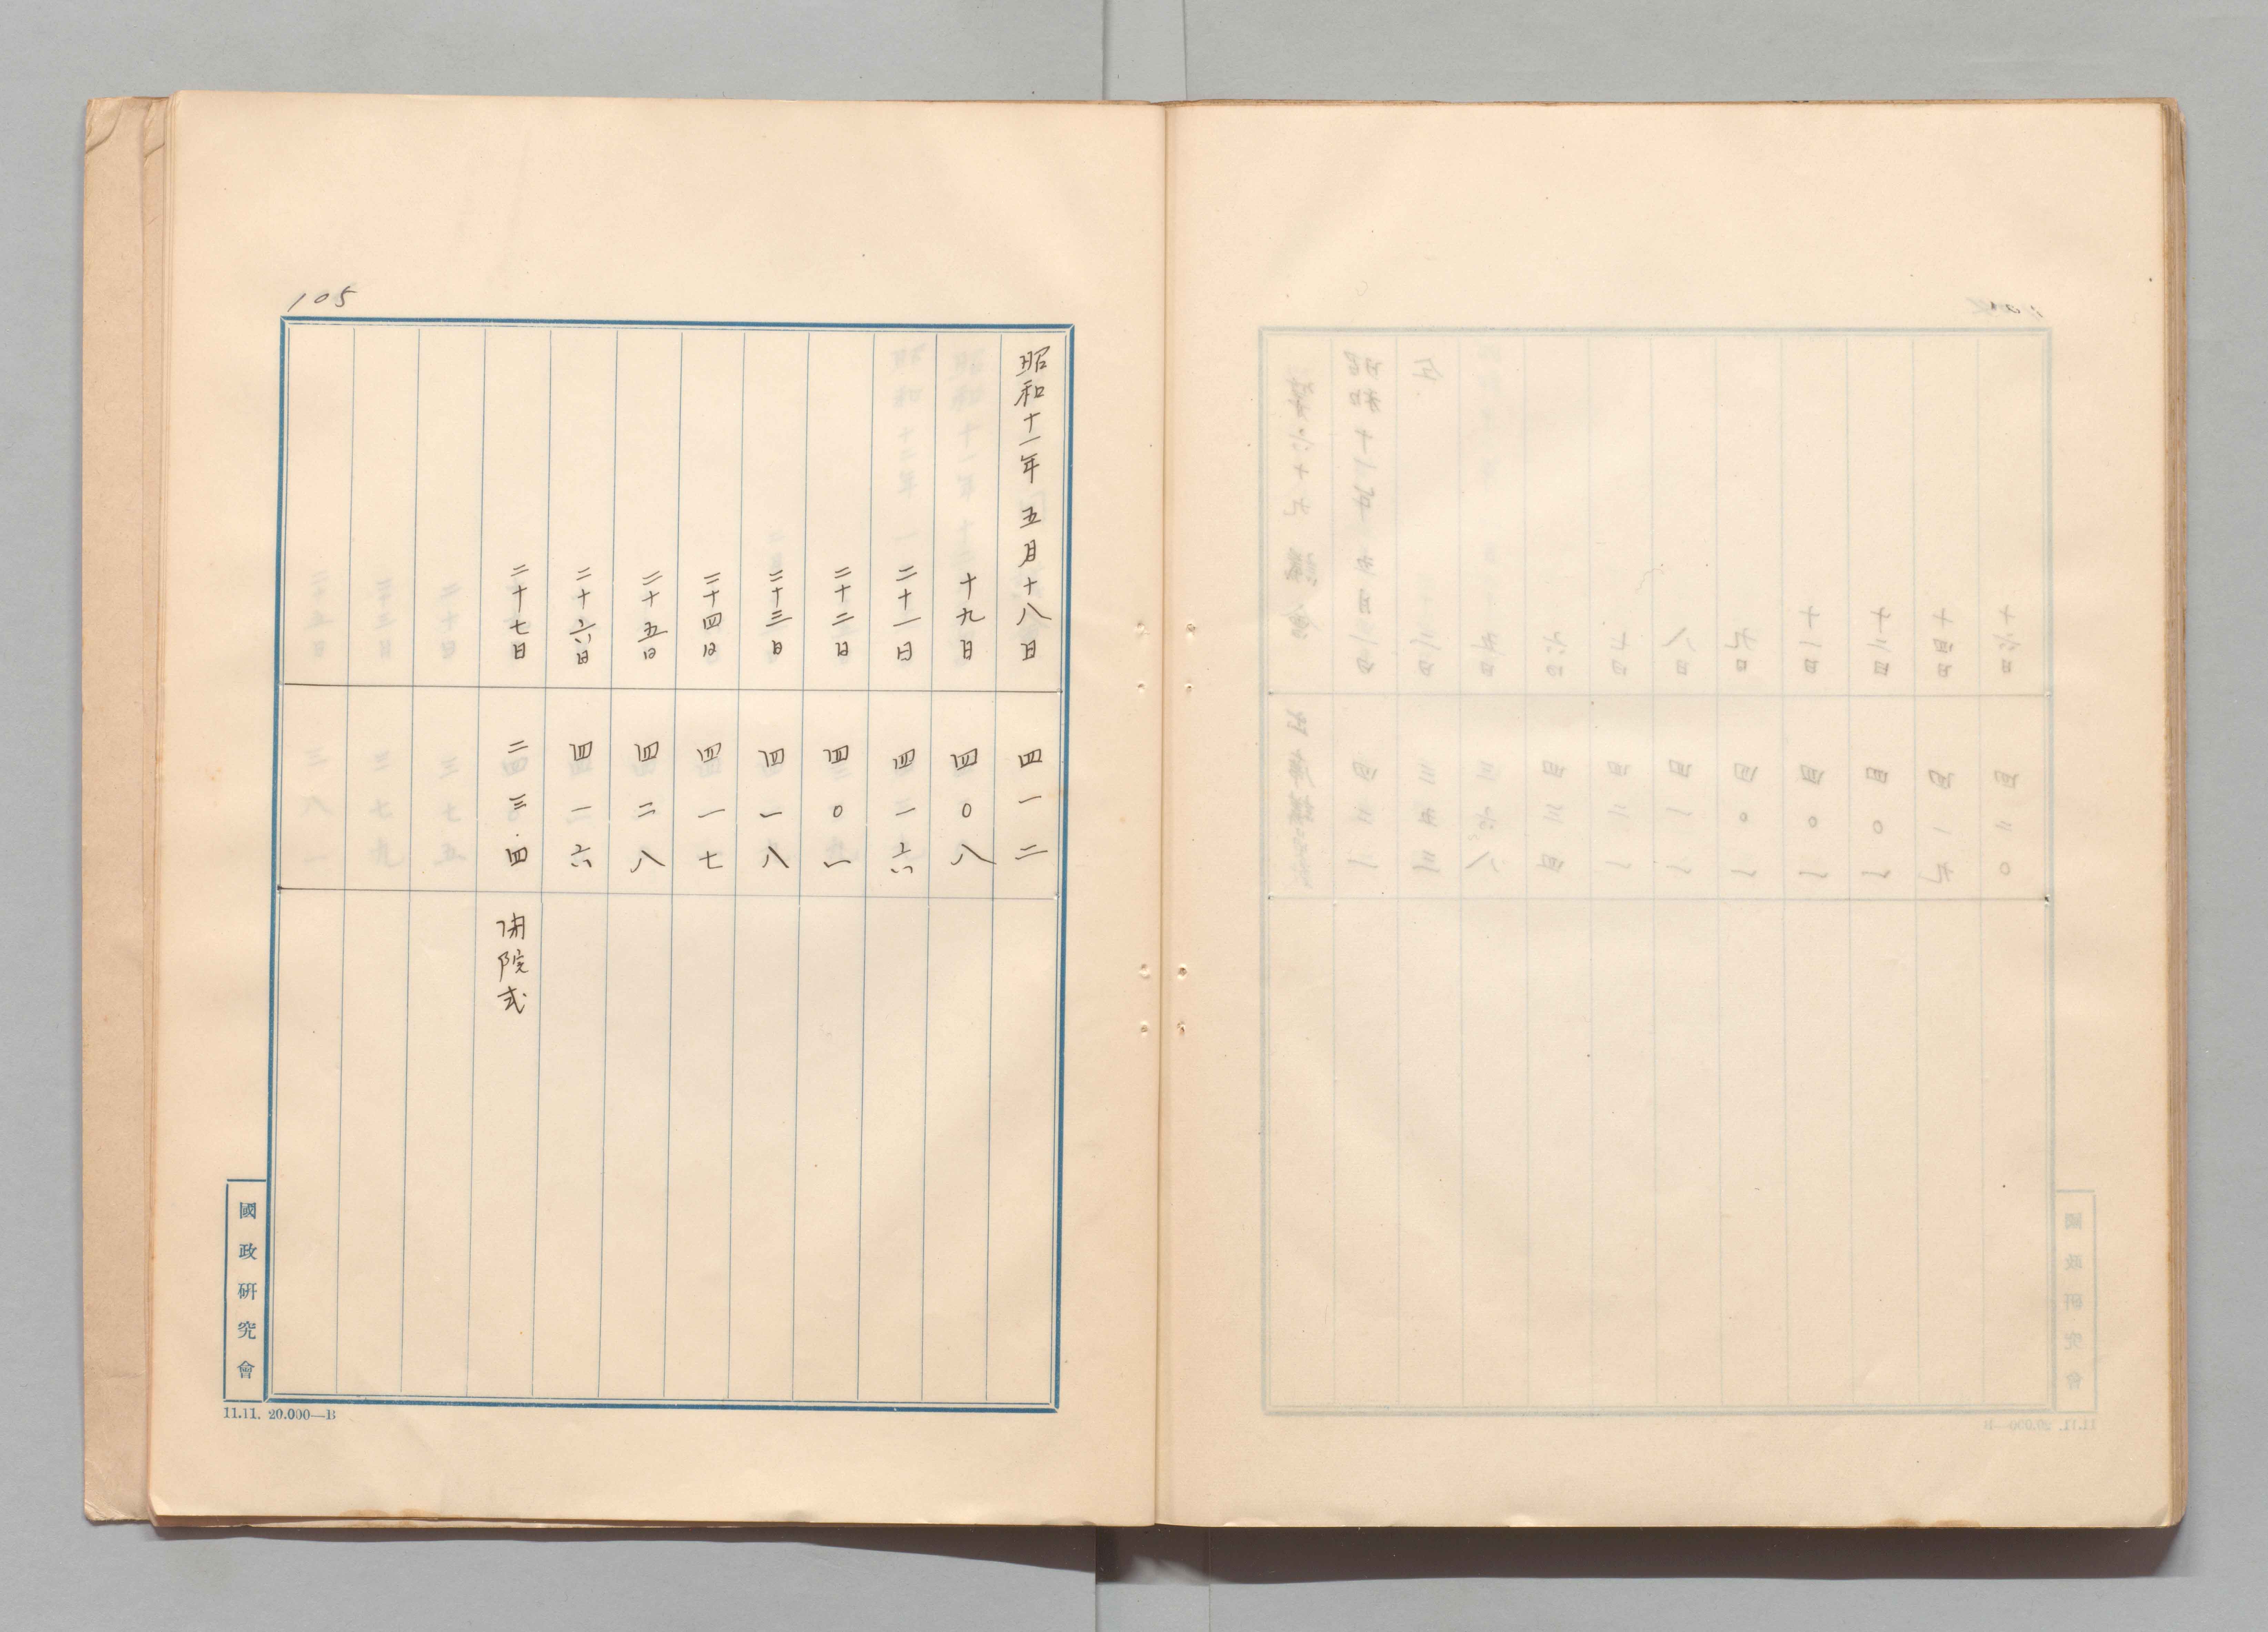 105
昭和十一年 五月十八日 四一二
十九日 四〇八
二十一日 四一六
二十二日 四〇一
二十三日 四一八
二十四日 四一七
二十五日 四二八
二十六日 四一六
二十七日 二三・四 閉院式
國政研究會
11.11. 20.000—B